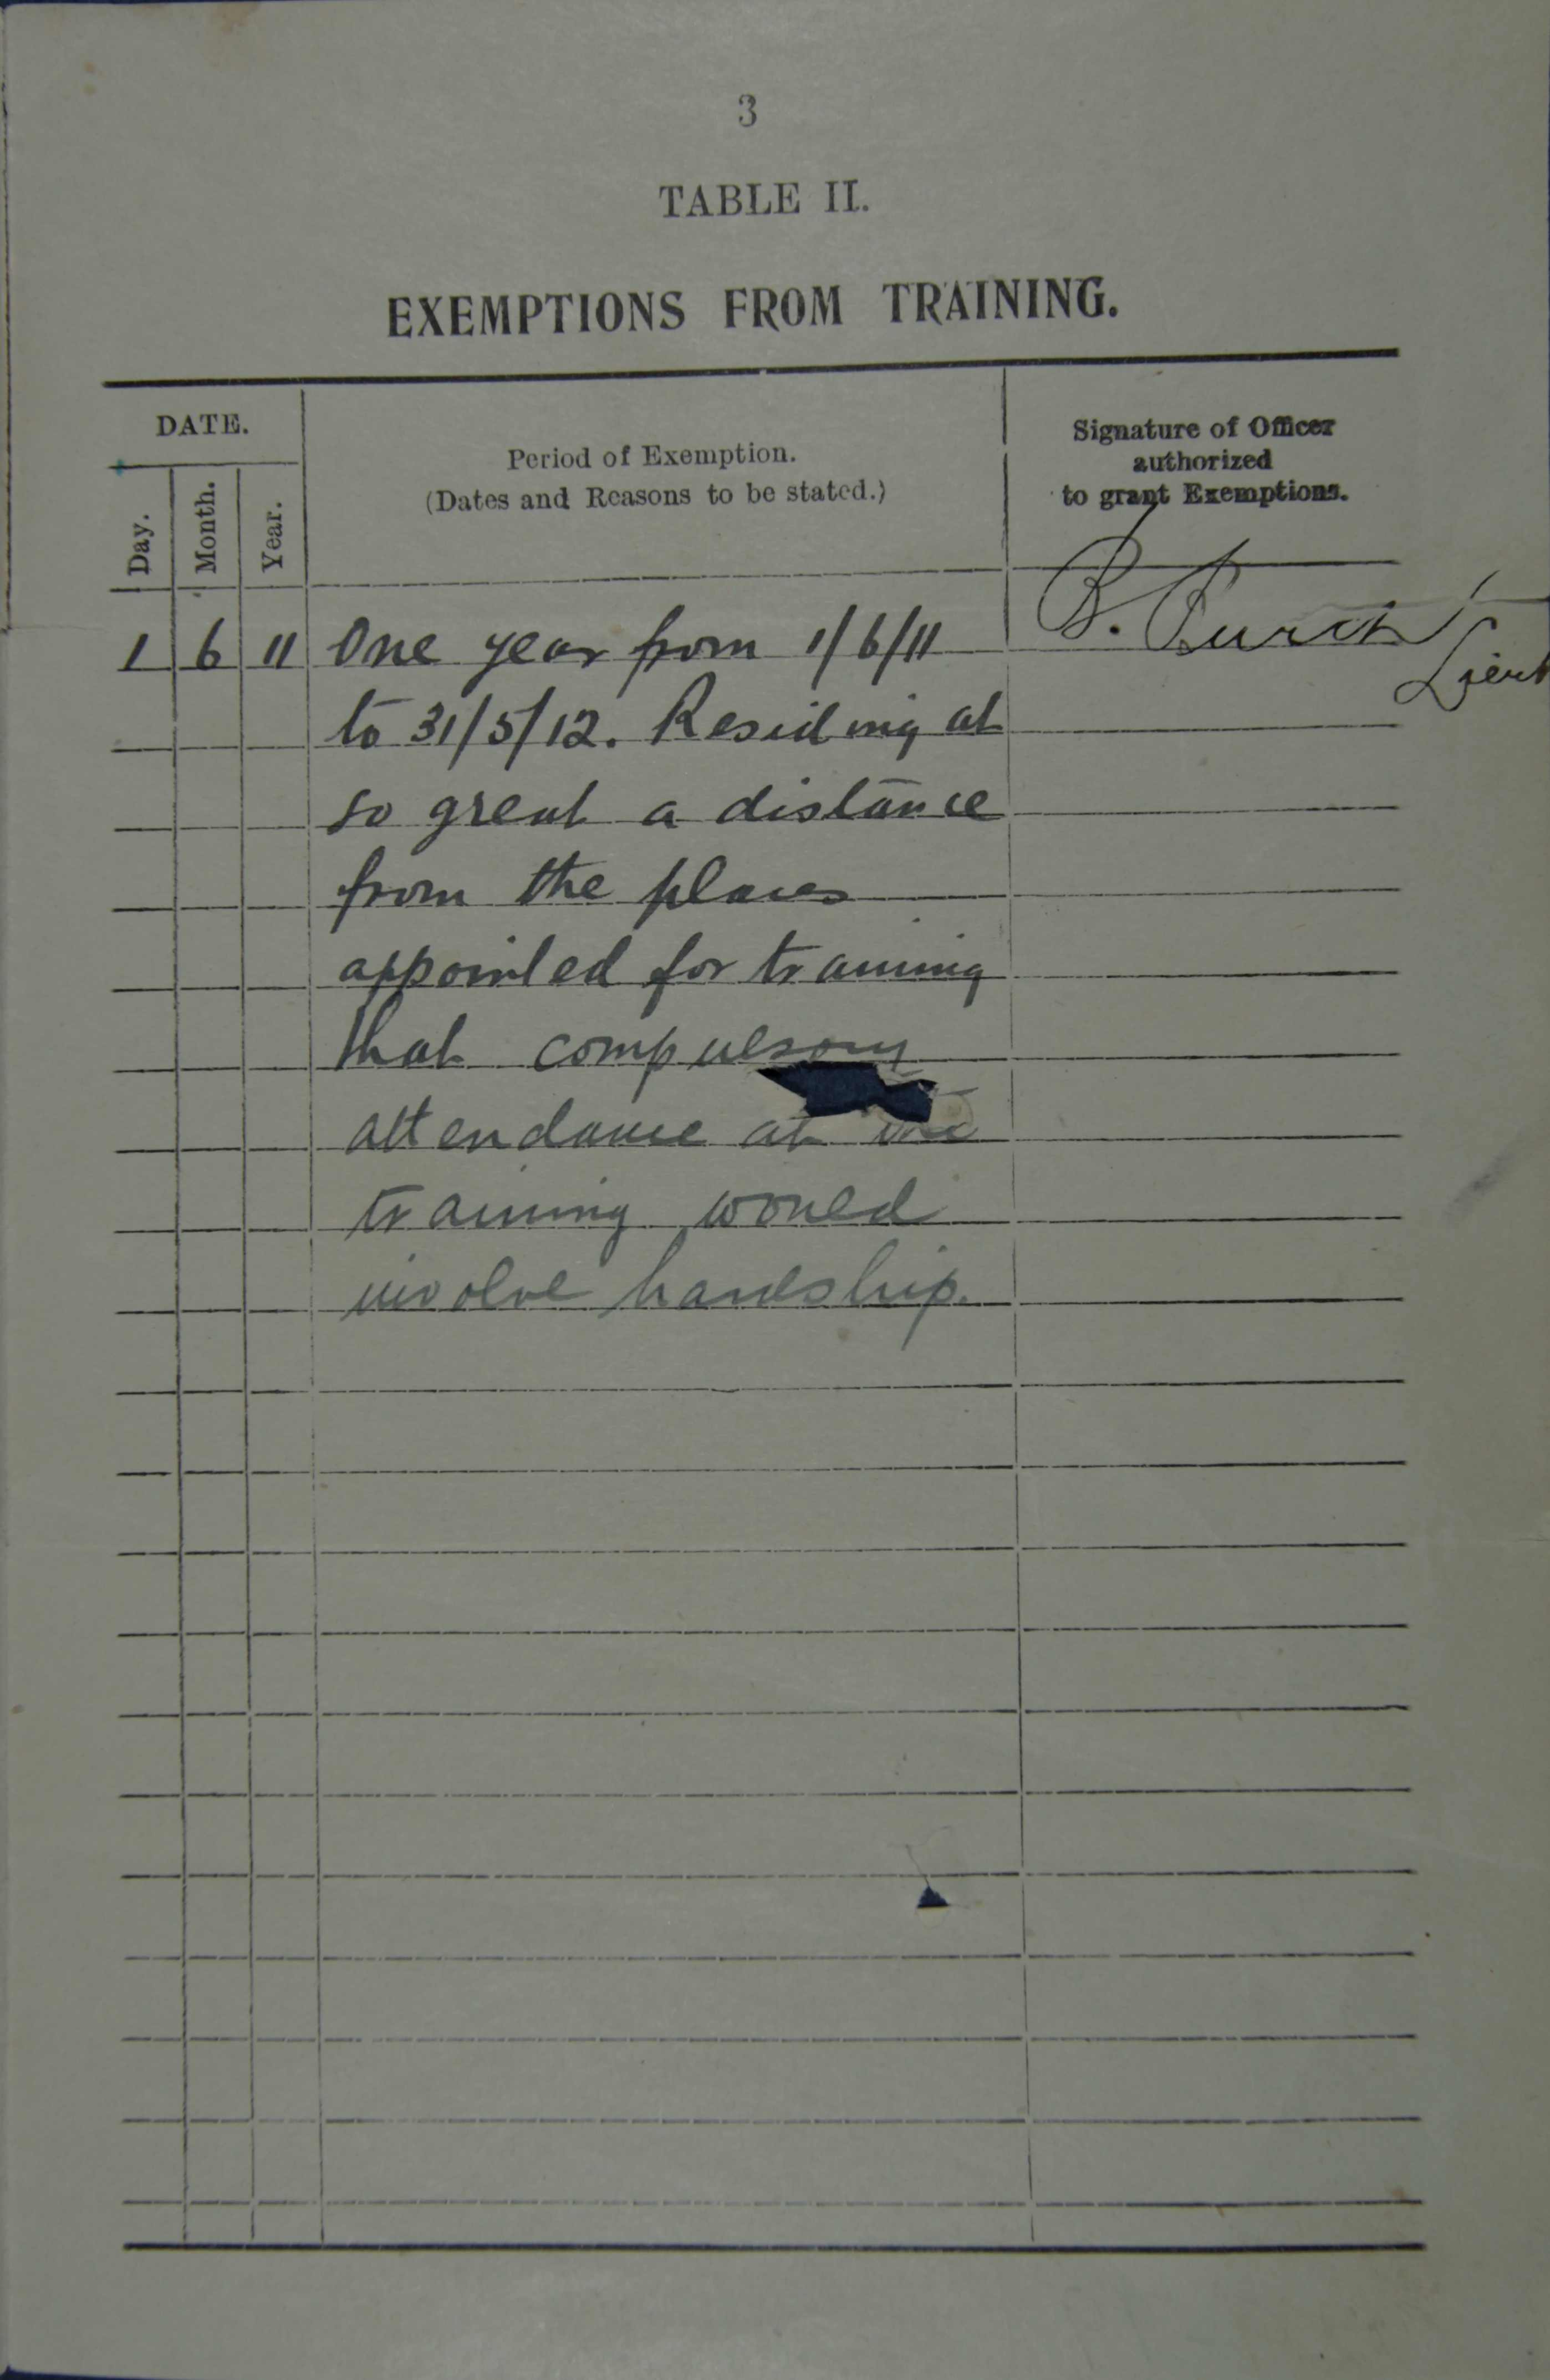 3
TABLE II.
EXEMPTIONS FROM TRAINING.
DATE.
Day.
Month.
Year.
Period of Exemption.
(Dates and Reasons to be stated.)
Signature of Officer
authorized
to grant Exemptions.
1 6 11 One year from 1/6/11 B.
Lieut
to 31/5/12. Residing at
so great a distance
from the places
appointed for training
that compulsory
attendance at the
training would
involve hardship.